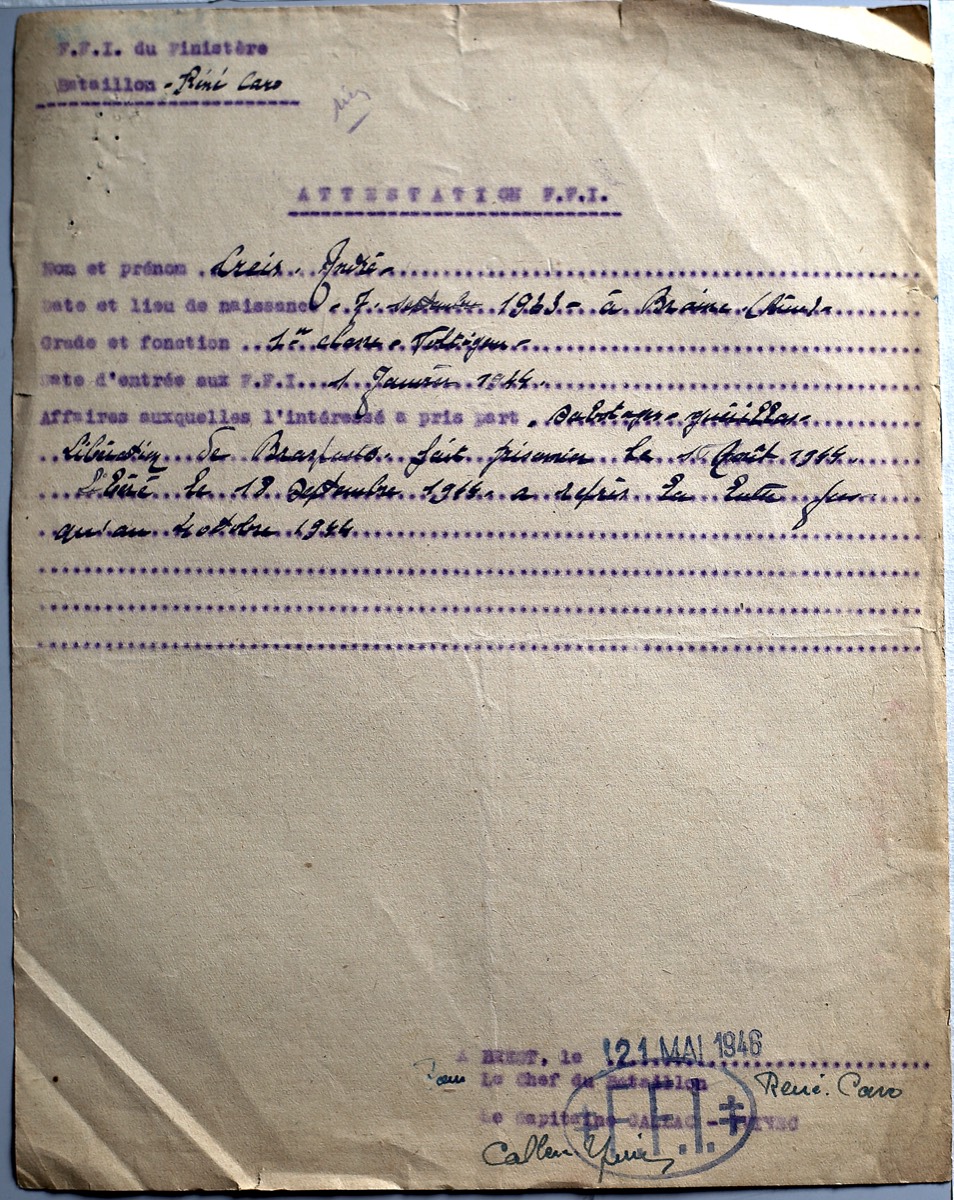 F.F.I. du Finistère
Bataillon - Réné Caro
ATTESTATION F.F.I.
Nom et prénom . Creis . André
Date et lieu de naissance 7 septembre 19 à Braine (Aisne)
Grade et fonction 1ère classe - Voltigeur
Date d'entrée aux F.F.I. 1 Janvier 1944
Affaires auxquelles l'intéressé a pris part . Sabotages - guérillas
Libération de Brasparts. fait prisonnier le Août 1944
Libéré le 18 septembre 1944 a repris la lutte jus-
qu'au 4 octobre 1944
A BREST, le 21 MAI 1946
Pour Le Chef du Bataillon René Caro
Le Capitaine
F.F.I.